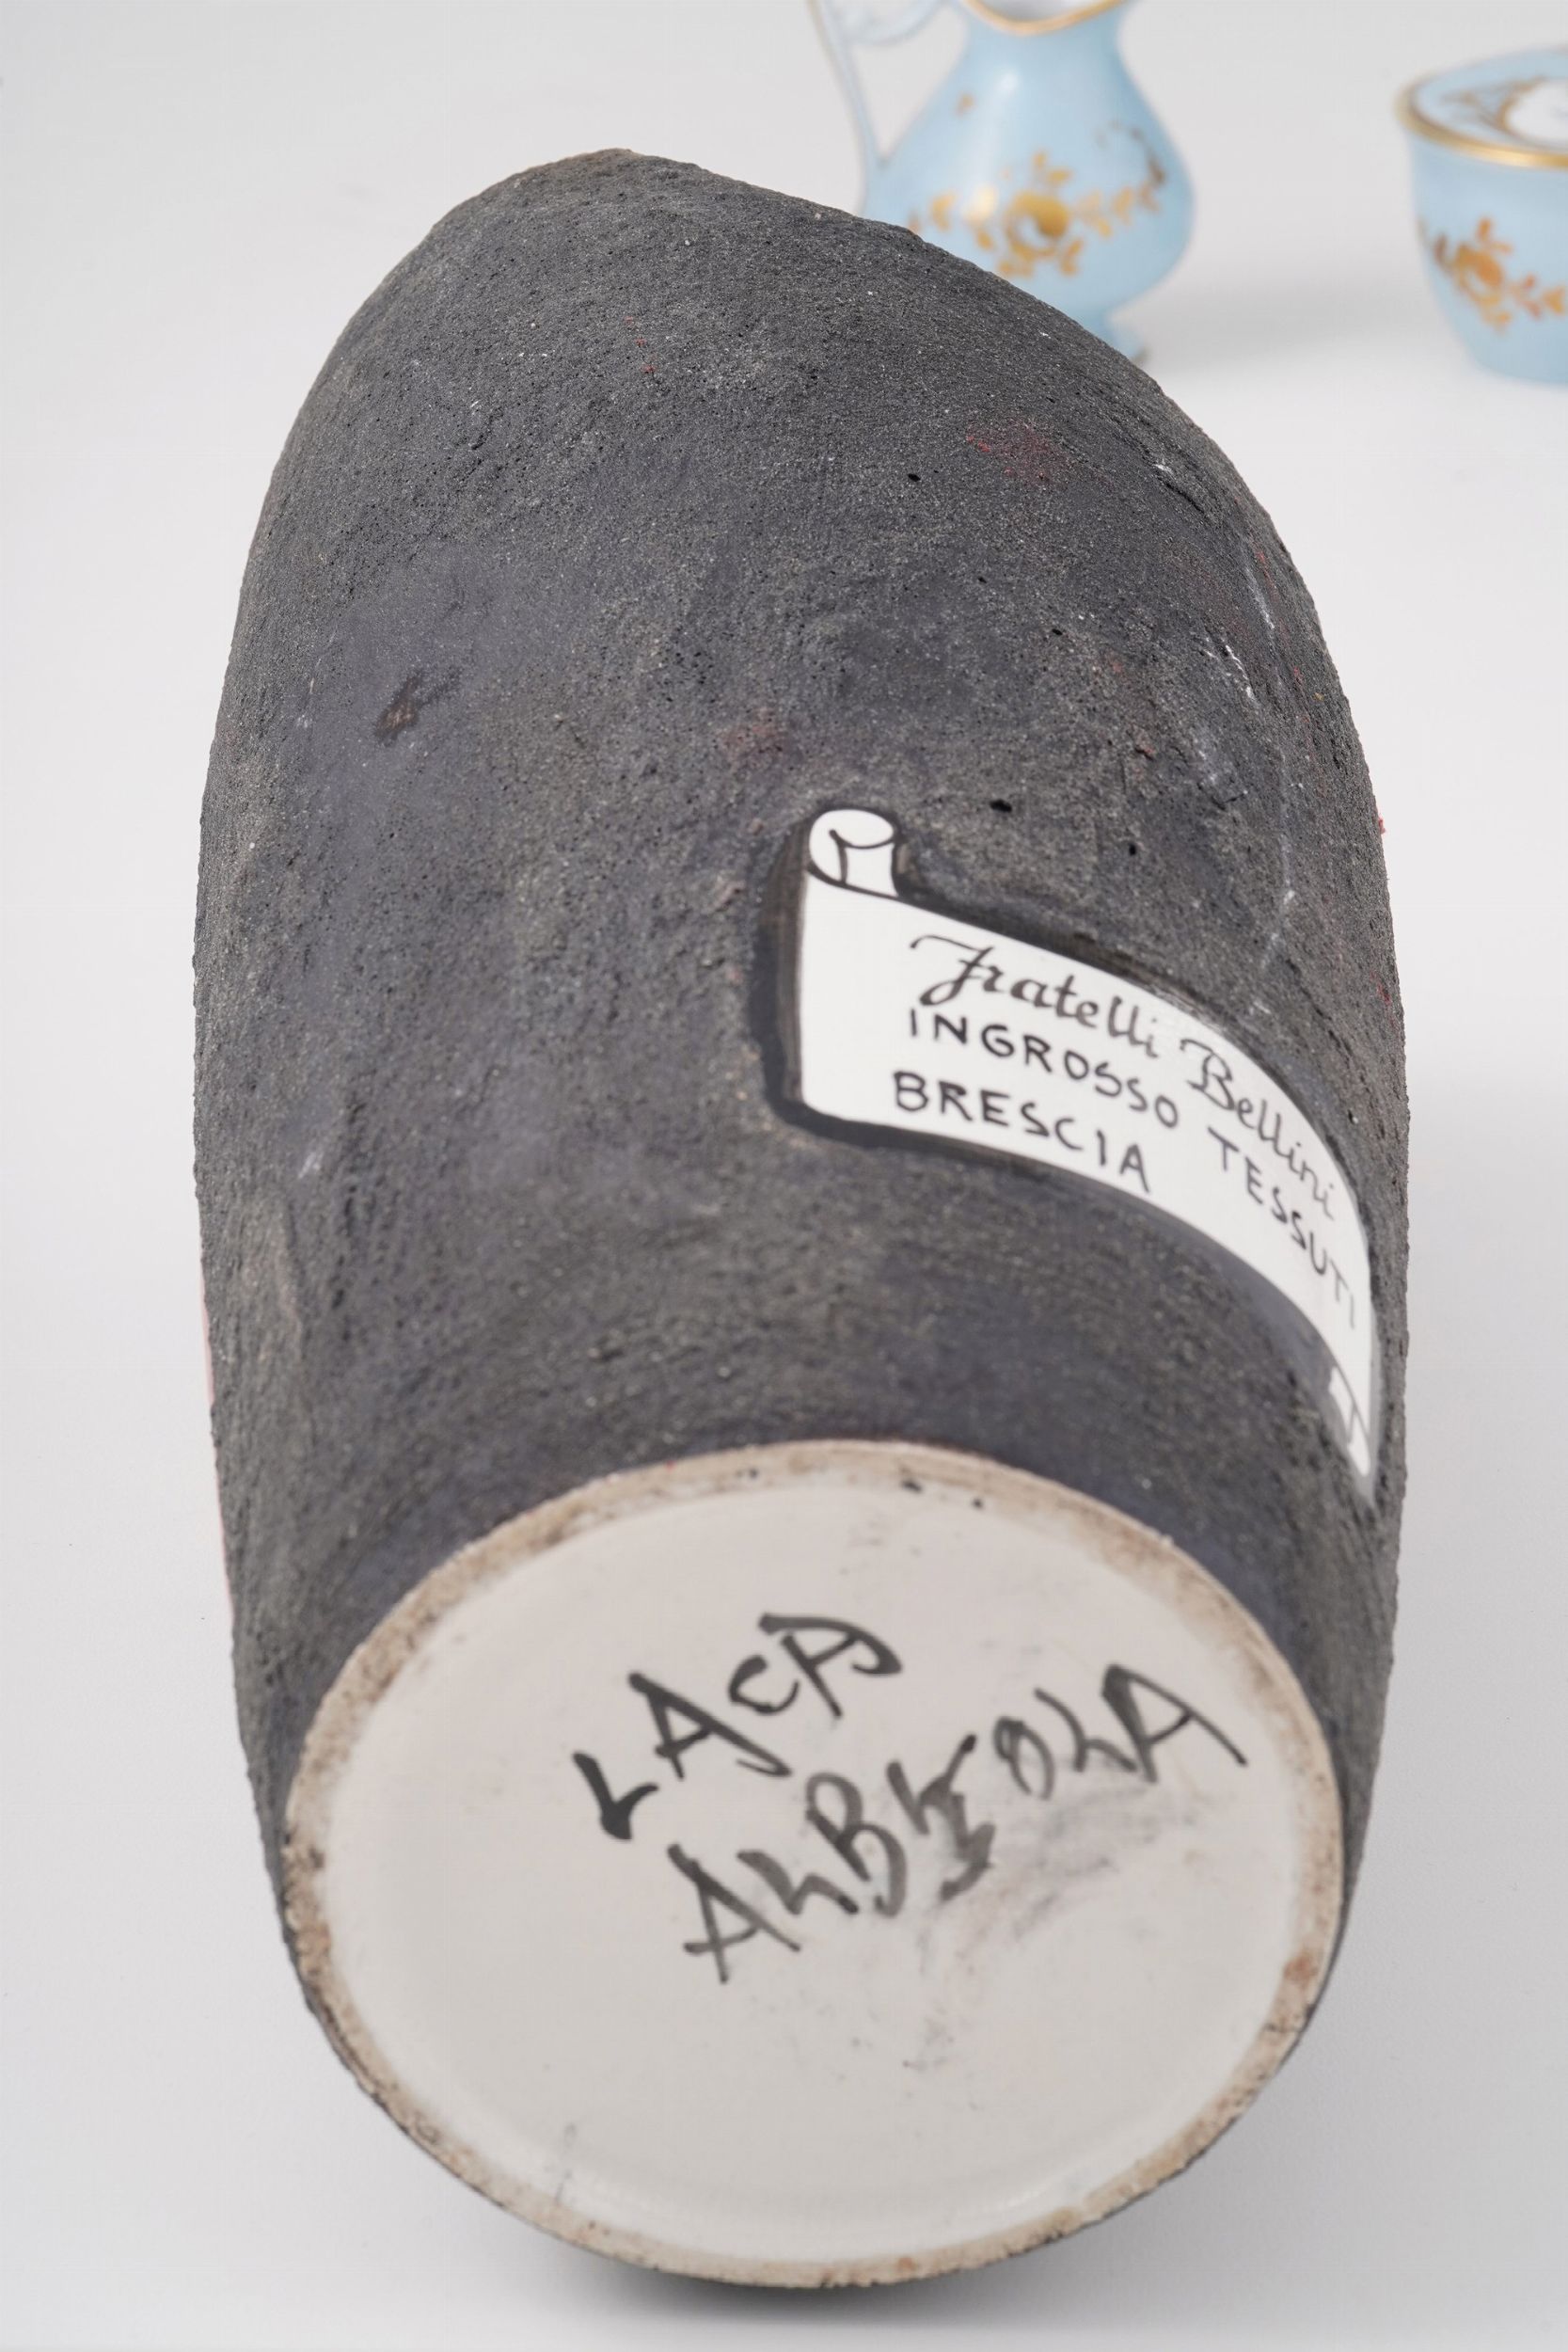 Fratelli Bellini
INGROSSO TESSUTI
BRESCIA
LACA
ALBISOLA